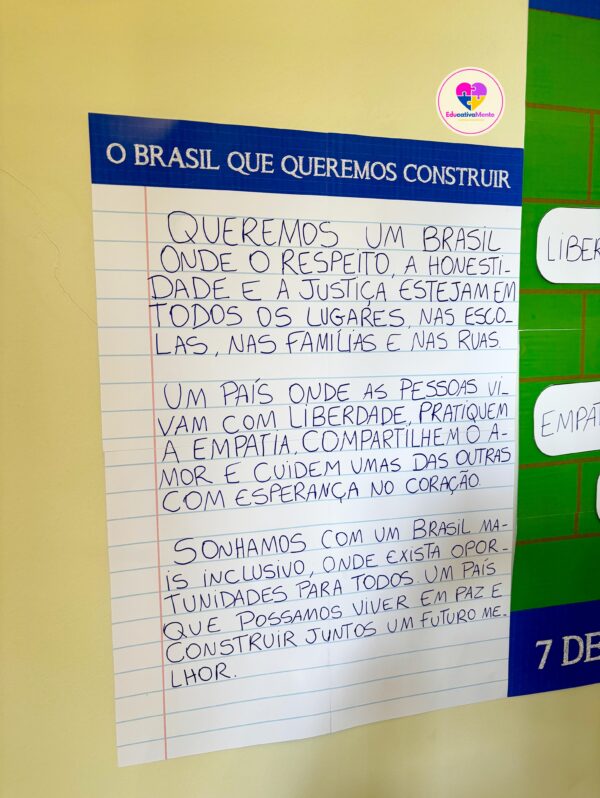 EducativaMente
O BRASIL QUE QUEREMOS CONSTRUIR
QUEREMOS UM BRASIL
ONDE O RESPEITO, A HONESTI-
DADE E A JUSTIÇA ESTEJAM EM
TODOS OS LUGARES, NAS ESCO-
LAS, NAS FAMÍLIAS E NAS RUAS.
UM PAÍS ONDE AS PESSOAS VI-
VAM COM LIBERDADE, PRATIQUEM
A EMPATIA, COMPARTILHEM O A-
MOR E CUIDEM UMAS DAS OUTRAS
COM ESPERANÇA NO CORAÇÃO.
SONHAMOS COM UM BRASIL MA-
IS INCLUSIVO, ONDE EXISTA OPOR-
TUNIDADES PARA TODOS. UM PAÍS
QUE POSSAMOS VIVER EM PAZ E
CONSTRUIR JUNTOS UM FUTURO ME-
LHOR.
LIBER
EMPAT
7 DE